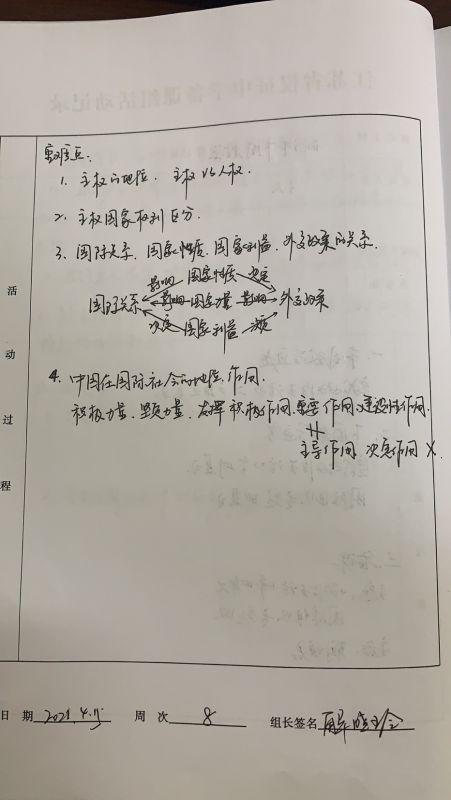 重难点：
1. 主权的地位. 主权 vs 人权.
2. 主权国家权利区分.
3. 国际关系. 国家性质. 国家利益. 外交政策的关系.
影响 国家性质 决定
国际关系 影响 国家力量 影响 外交政策
决定 国家利益 决定
4. 中国在国际社会的地位. 作用.
积极力量. 坚定力量. 发挥积极作用. 重要作用. 建设性作用.
主导作用 决定作用 ×.
活动过程
日 期 2021.4. 周 次 8 组长签名